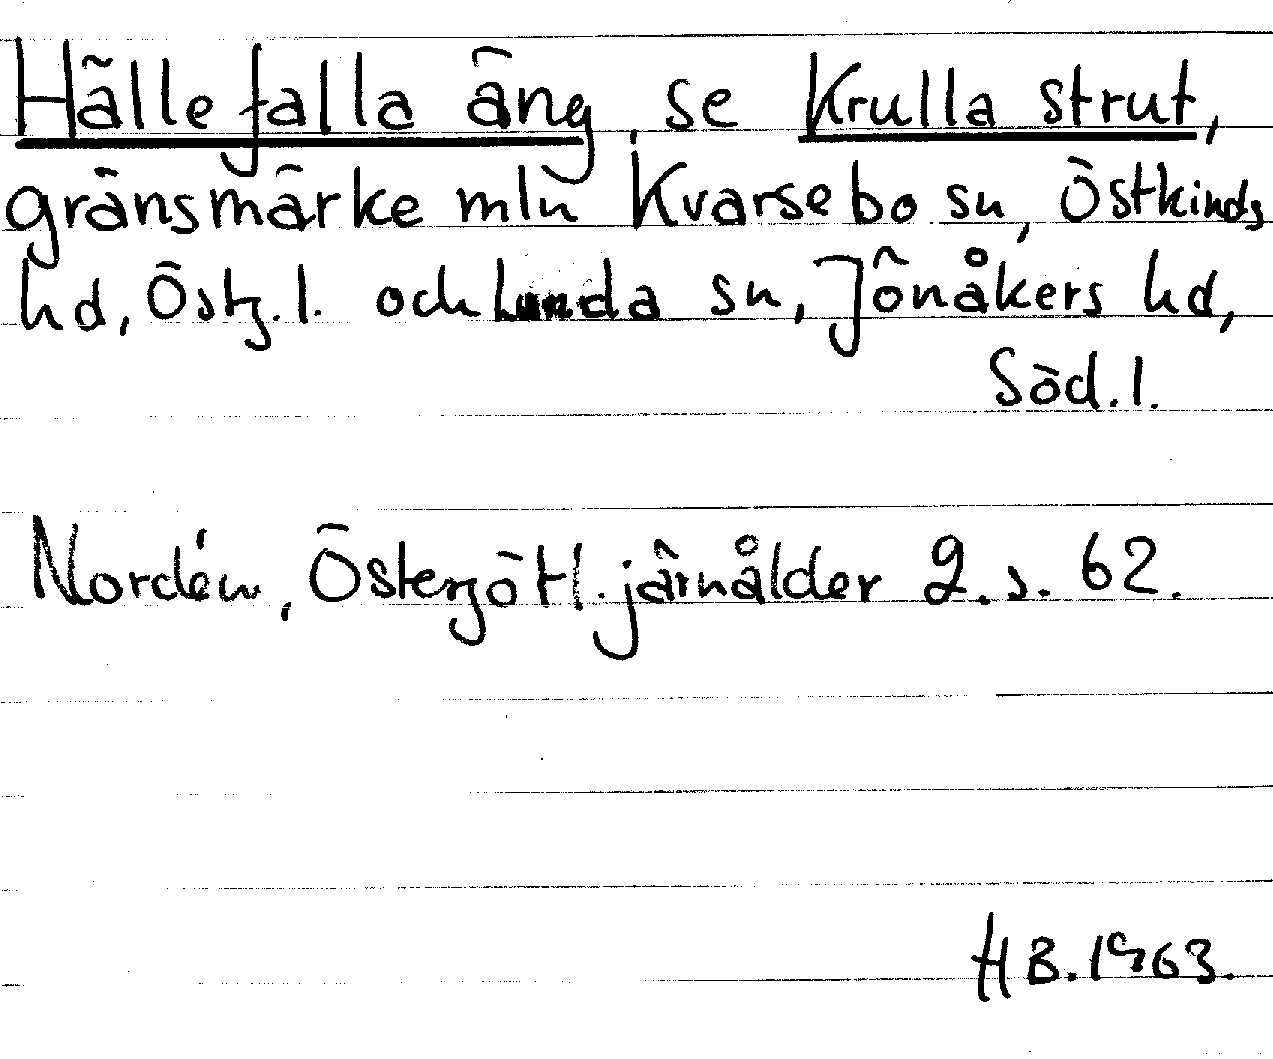 Hällefalla äng, se Krulla strut,
gränsmärke mln Kvarsebo sn, Östkinds
hd, Östg.l. och Lunda sn, Jönåkers hd,
Söd.l.
Nordén, Östergötl. järnålder 2. s. 62.
HB. 1963.